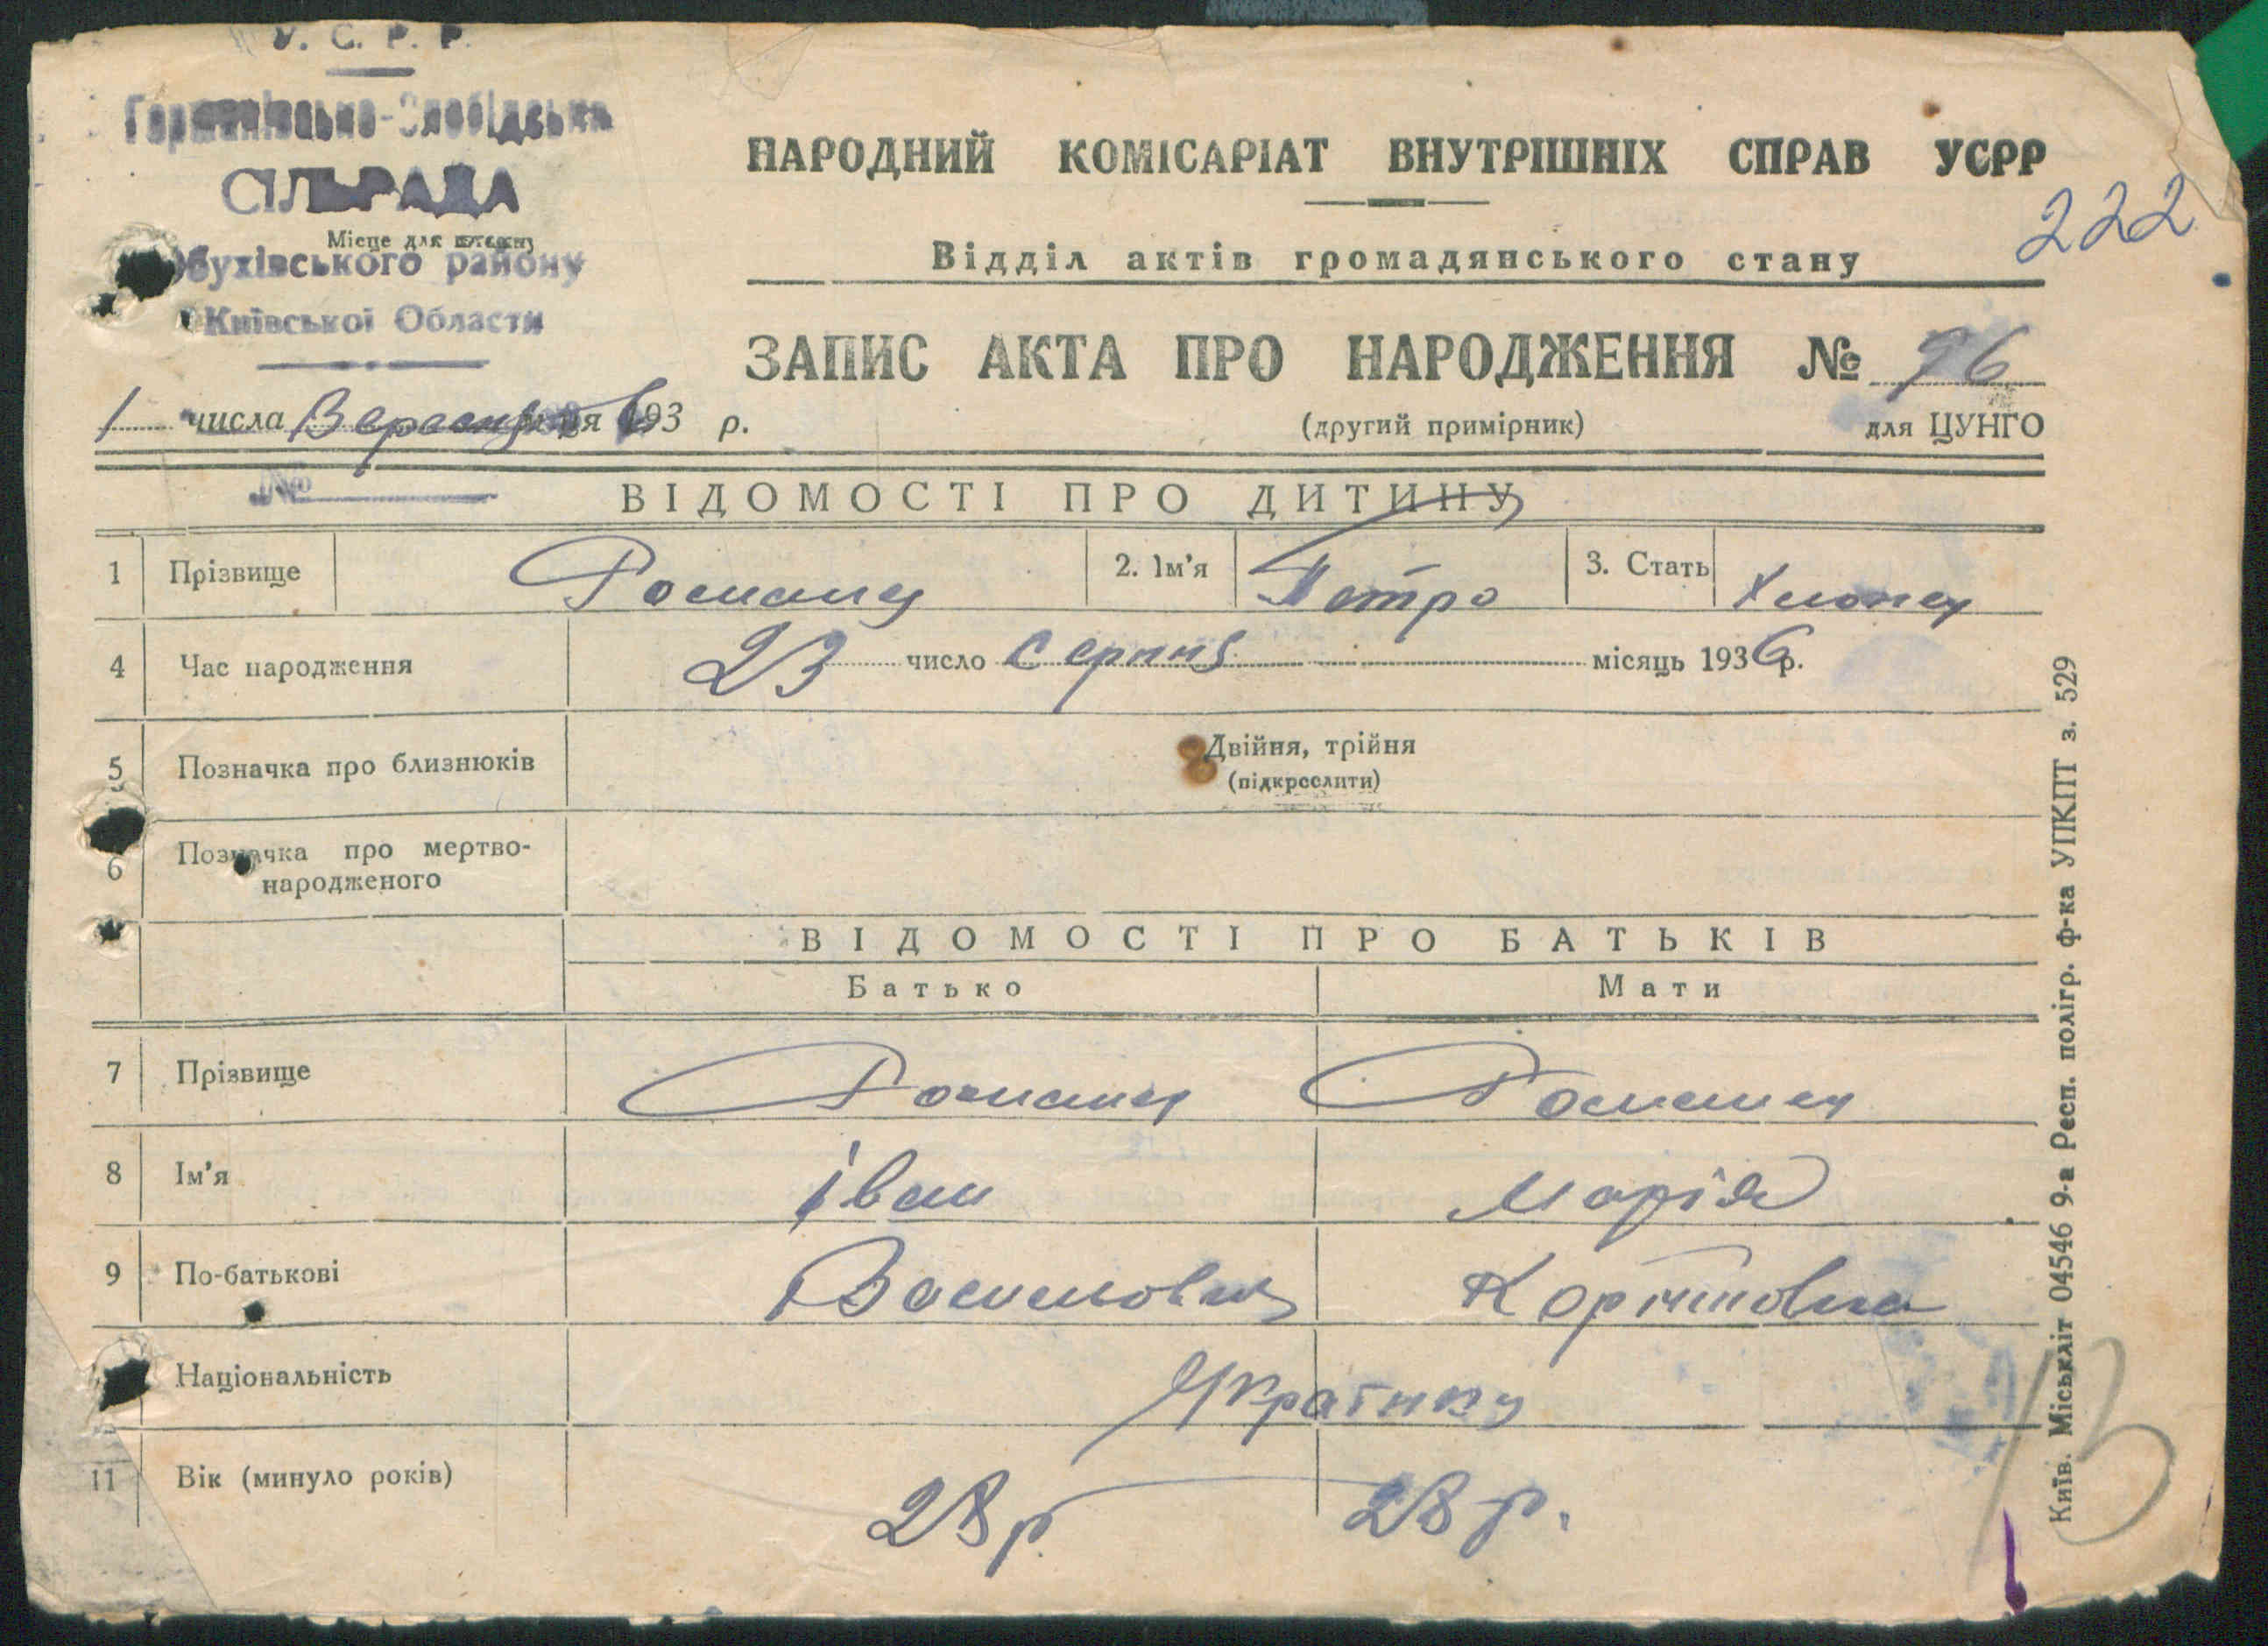 У. С. Р. Р.
СІЛЬРАДА
Місце для штампу
Обухівського району
Київської Области
1 числа Вересня м-ця 1936 р.
№
НАРОДНИЙ КОМІСАРІАТ ВНУТРІШНІХ СПРАВ УСРР
222
Відділ актів громадянського стану
ЗАПИС АКТА ПРО НАРОДЖЕННЯ № 96
(другий примірник) для ЦУНГО
ВІДОМОСТІ ПРО ДИТИНУ
1 Прізвище 2. Ім'я Петро 3. Стать Хлопец
4 Час народження 23 число Серпня місяць 1936 р.
5 Позначка про близнюків Двійня, трійня
(підкреслити)
6 Позначка про мертво-
народженого
ВІДОМОСТІ ПРО БАТЬКІВ
Батько Мати
7 Прізвище
8 Ім'я Іван Марія
9 По-батькові Василович
Національність Українці
11 Вік (минуло років) 28 р. 28 р.
13
Київ. Міськліт 04546 9-а Респ. полігр. ф-ка УПКПТ з. 529